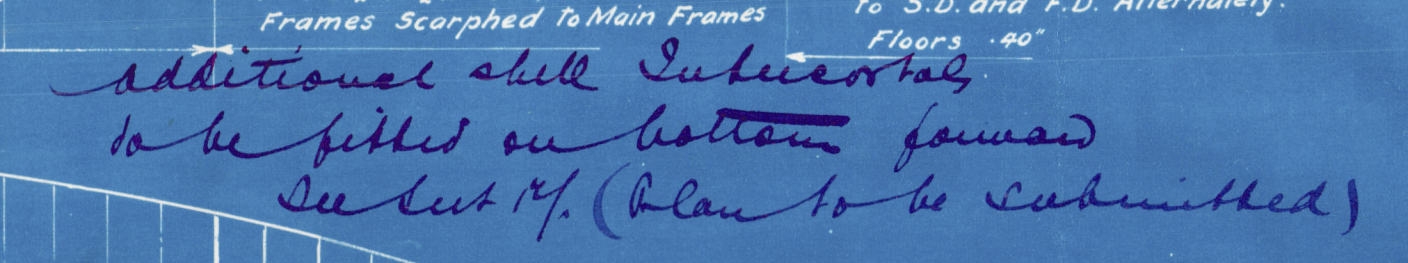 Frames Scarphed to Main Frames
to S.D. and F.D. Alternately.
Floors .40"
additional shell Intercostals
to be fitted on bottom forward
See Sect 17/. (Plan to be submitted)